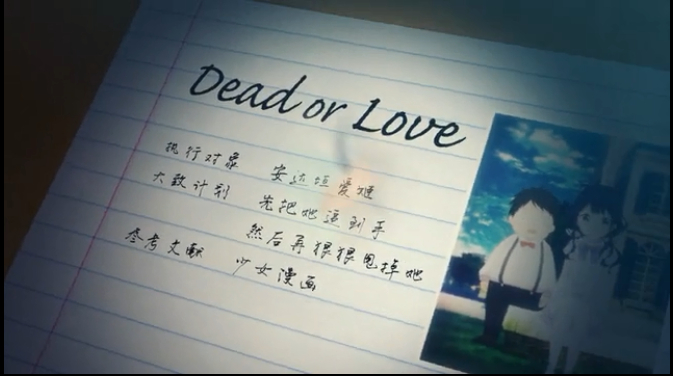 Dead or Love
执行对象 安达垣爱姬
大致计划 先把她追到手
然后再狠狠甩掉她
参考文献 少女漫画